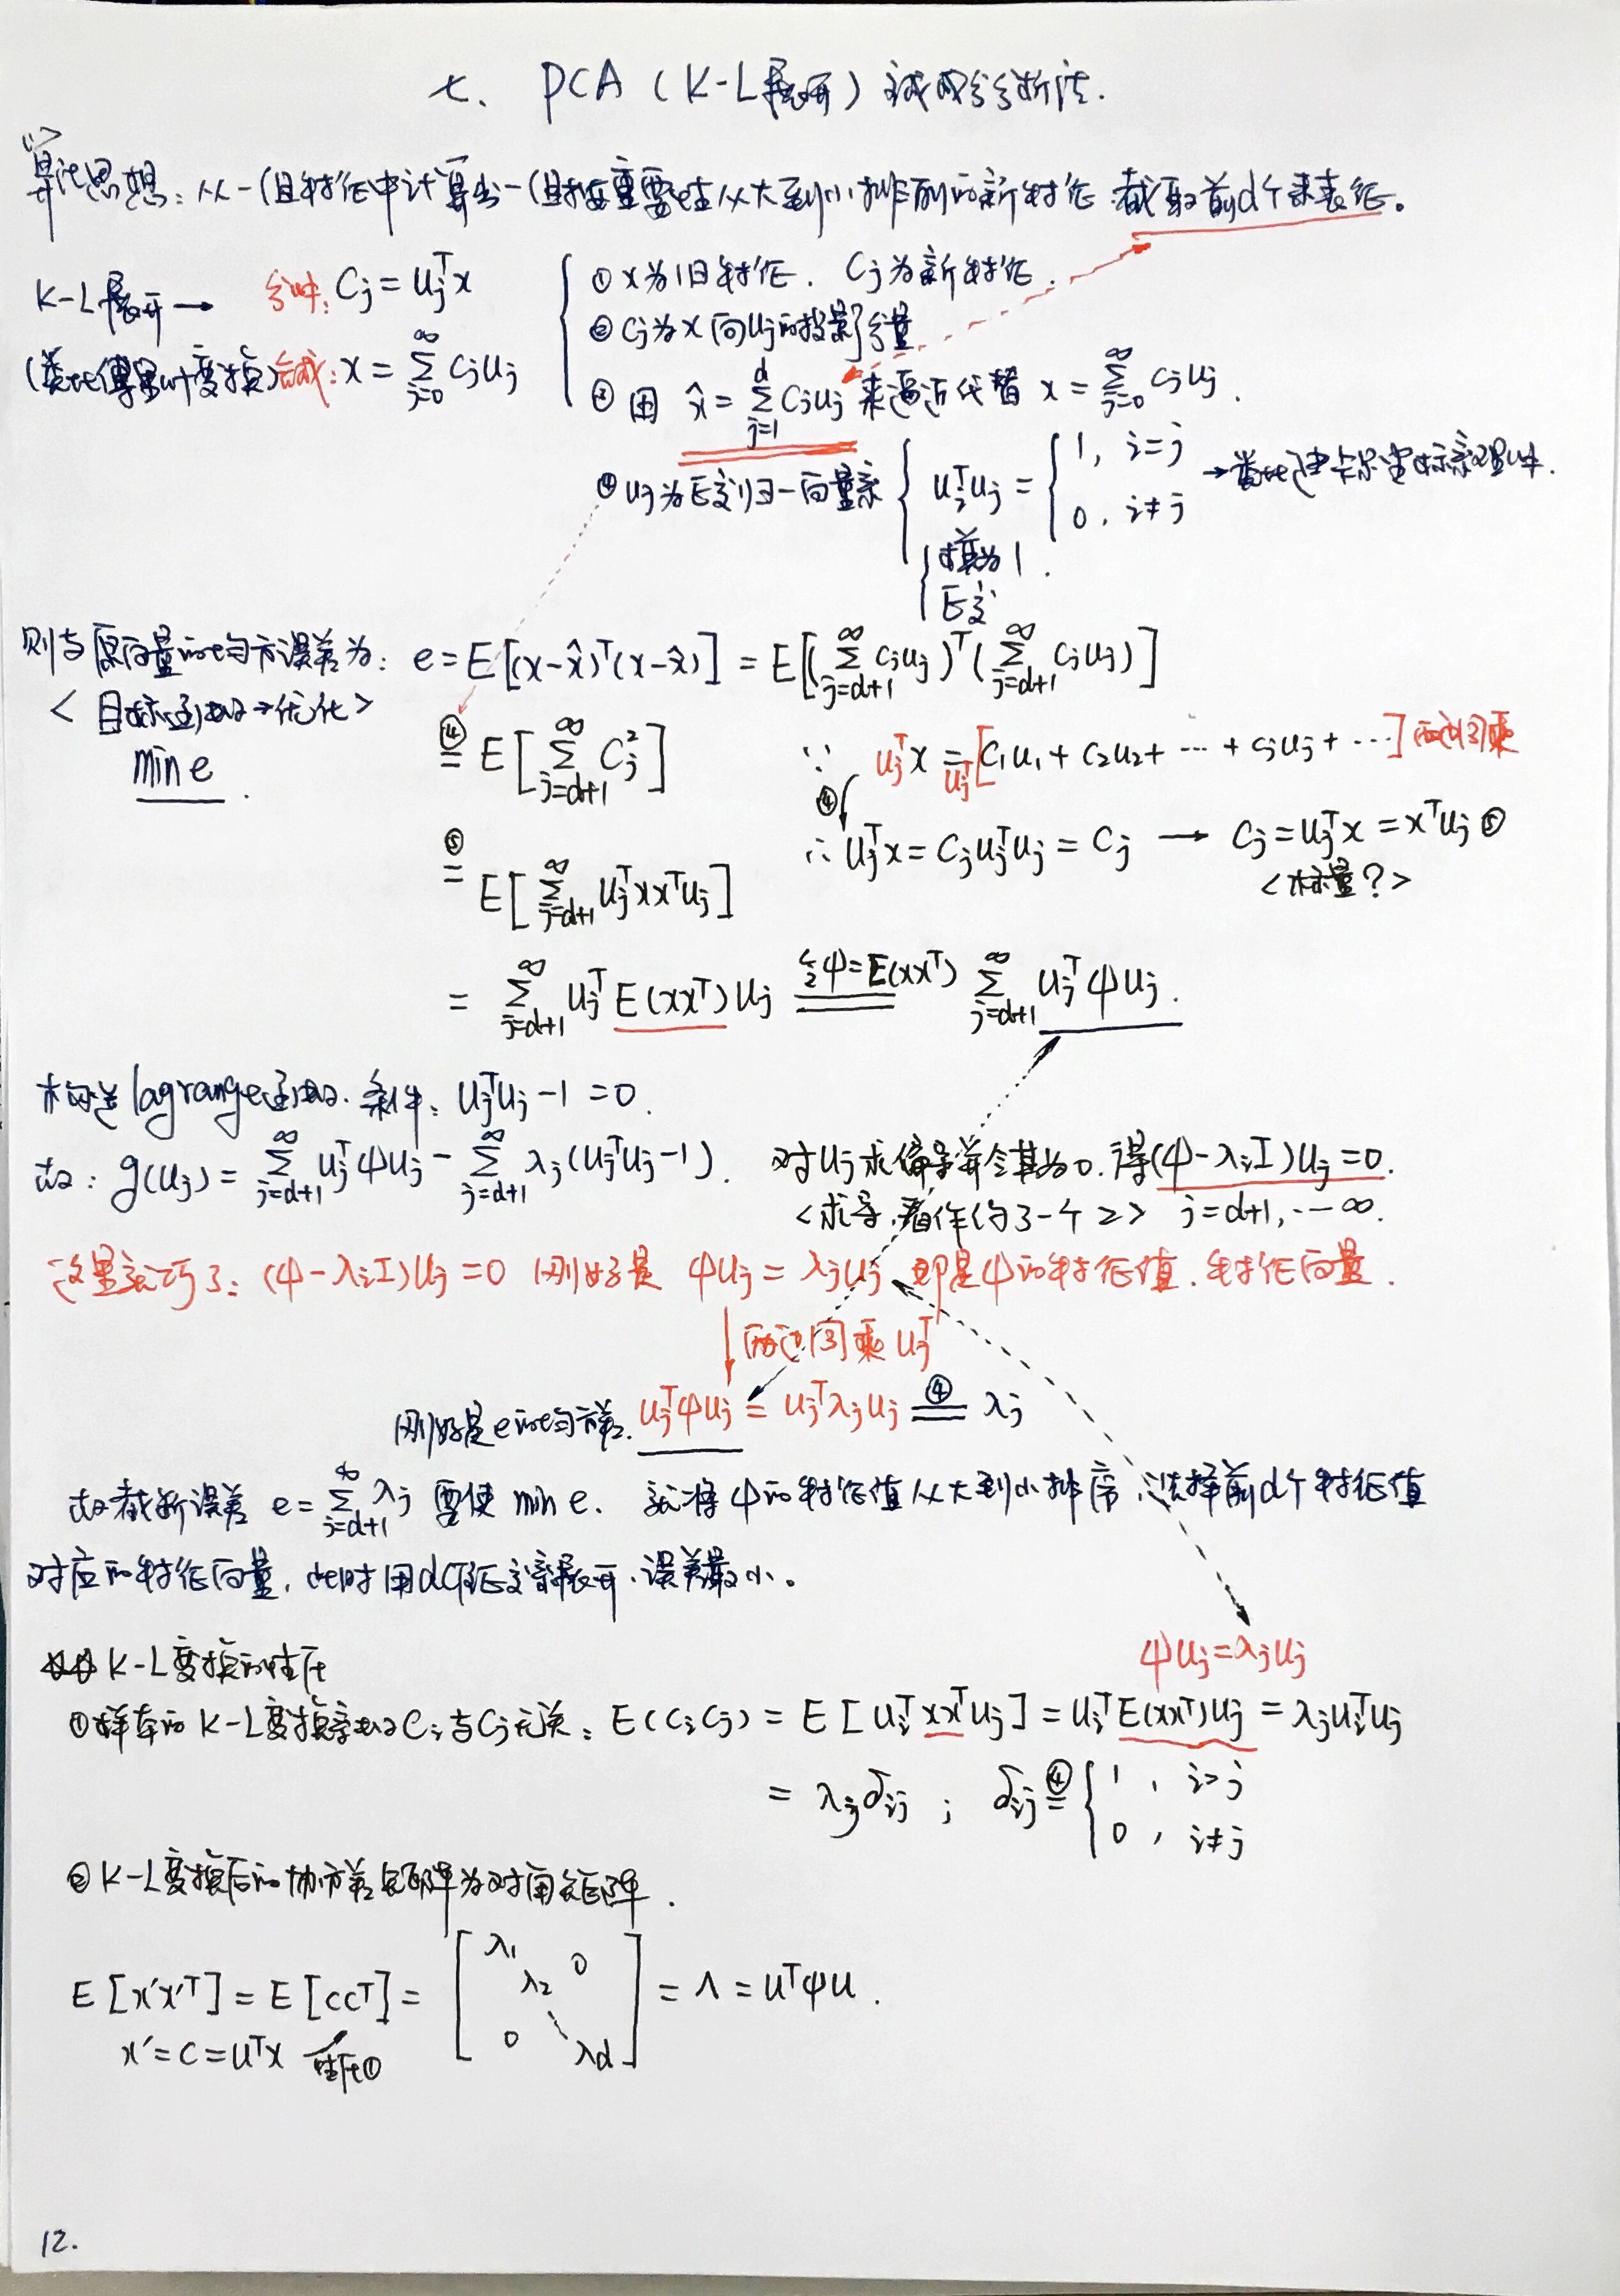 七、PCA（K-L展开）主成分分析法.
<1>
算法思想：从一组特征中计算出一组按重要性从大到小排列的新特征 截取前d个来表征。
K-L展开→ 分解: Cj = ujᵀx
(类比傅里叶变换) 合成: x = ∑_{j=0}^{∞} cjuj
① x为旧特征. Cj为新特征.
② Cj为x向uj的投影分量
③ 用 x̂ = ∑_{j=1}^{d} Cjuj 来逼近代替 x = ∑_{j=0}^{∞} cjuj.
④ uj为正交归一向量系 { uiᵀuj = { 1, i=j ; 0, i≠j →类比迪卡尔坐标系理解.
{ 模为1.
正交
则与原向量的均方误差为: e = E[(x-x̂)ᵀ(x-x̂)] = E[(∑_{j=d+1}^{∞} cjuj)ᵀ(∑_{j=d+1}^{∞} cjuj)]
<目标函数→优化>
min e.
④= E[∑_{j=d+1}^{∞} Cj²]
∵ ujᵀx = ujᵀ[C1u1 + C2u2 + ··· + cjuj + ···] 两边同乘
④ ∴ ujᵀx = Cjujᵀuj = Cj → Cj = ujᵀx = xᵀuj ⑤
<标量?>
⑤= E[∑_{j=d+1}^{∞} ujᵀxxᵀuj]
= ∑_{j=d+1}^{∞} ujᵀE(xxᵀ)uj 令ψ=E(xxᵀ) ∑_{j=d+1}^{∞} ujᵀψuj.
构造lagrange函数. 条件: ujᵀuj-1=0.
故: g(uj) = ∑_{j=d+1}^{∞} ujᵀψuj - ∑_{j=d+1}^{∞} λj(ujᵀuj-1). 对uj求偏导并令其为0. 得(ψ-λjI)uj=0.
<求导,看作约了一个2> j=d+1,··· ∞.
这里就巧了: (ψ-λjI)uj=0 刚好是 ψuj=λjuj 即是ψ的特征值.特征向量.
↓两边同乘ujᵀ
刚好是e的均方差. ujᵀψuj = ujᵀλjuj ④= λj
故截断误差 e=∑_{j=d+1}^{∞} λj 要使 min e. 就将ψ的特征值从大到小排序,选择前d个特征值
对应的特征向量, 此时用d个正交系展开,误差最小。
K-L变换的性质
ψuj=λjuj
①样本的K-L变换系数Ci与Cj无关: E(CiCj) = E[uiᵀxxᵀuj] = uiᵀE(xxᵀ)uj = λjuiᵀuj
= λjδij ; δij ④= { 1, i=j ; 0, i≠j
②K-L变换后的协方差矩阵为对角矩阵.
E[x'x'ᵀ] = E[ccᵀ] = [λ1 λ2 0 0 ⋱ λd] = Λ = uᵀψu.
x'=c=uᵀx 性质①
12.